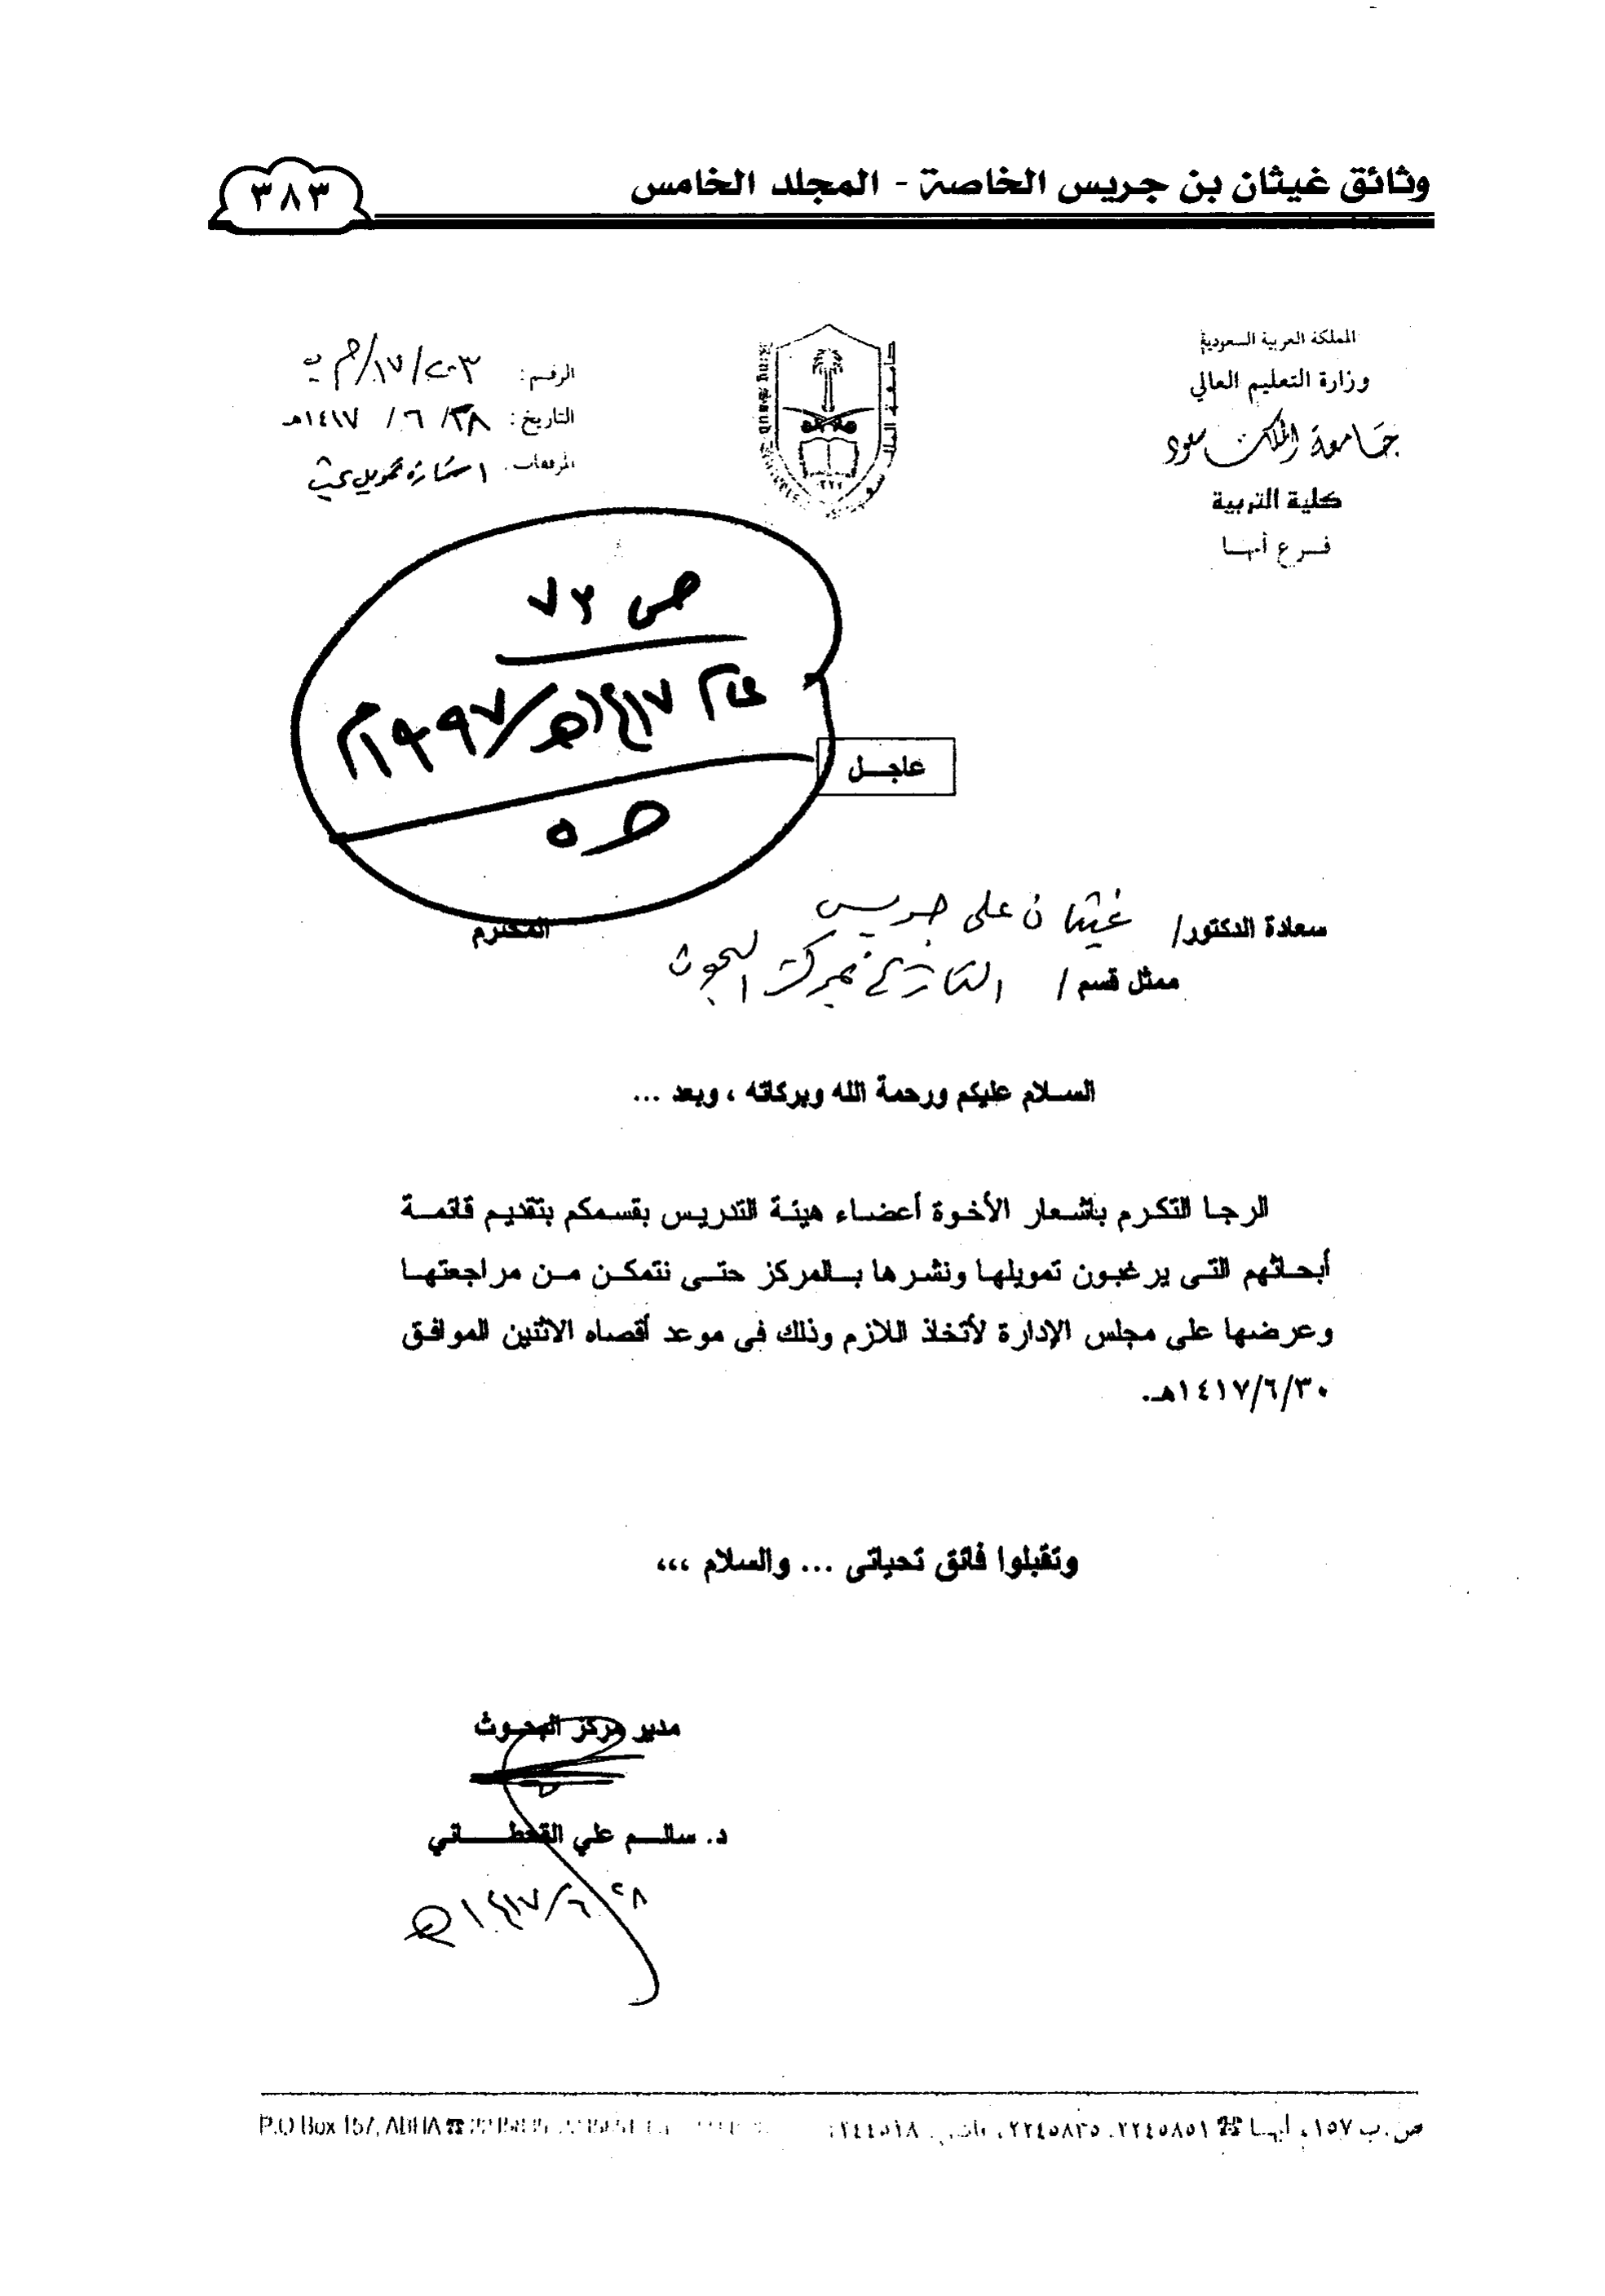 وثائق غيثان بن جريس الخاصة - المجلد الخامس
٣٨٣
المملكة العربية السعودية
وزارة التعليم العالي
جامعة الملك سعود
كلية التربية
فرع أبها
الرقم: ٢٠٣/١٧/م ب
التاريخ: ٢٨/٦/١٤١٧هـ
المرفقات: استمارة تمويل بحث
ص ٧٢
١٤١٧هـ/١٩٩٧م
عاجل
سعادة الدكتور/ غيثان علي جريس المحترم
ممثل قسم / التاريخ بمركز البحوث
السلام عليكم ورحمة الله وبركاته ، وبعد ...
الرجا التكرم باشعار الأخوة أعضاء هيئة التدريس بقسمكم بتقديم قائمة
أبحاثهم التى يرغبون تمويلها ونشرها بالمركز حتى نتمكن من مراجعتها
وعرضها على مجلس الإدارة لأتخاذ اللازم وذلك فى موعد أقصاه الاثنين الموافق
١٤١٧/٦/٣٠هـ.
وتقبلوا فائق تحياتى ... والسلام ،،،
مدير مركز البحوث
د. سالم علي القحطاني
٢٨/٦/١٤١٧هـ
ص.ب ١٥٧، أبها ☎ ٢٢٤٥٨٥١، ٢٢٤٥٨٣٥،
P.O Box 157, ABHA ☎